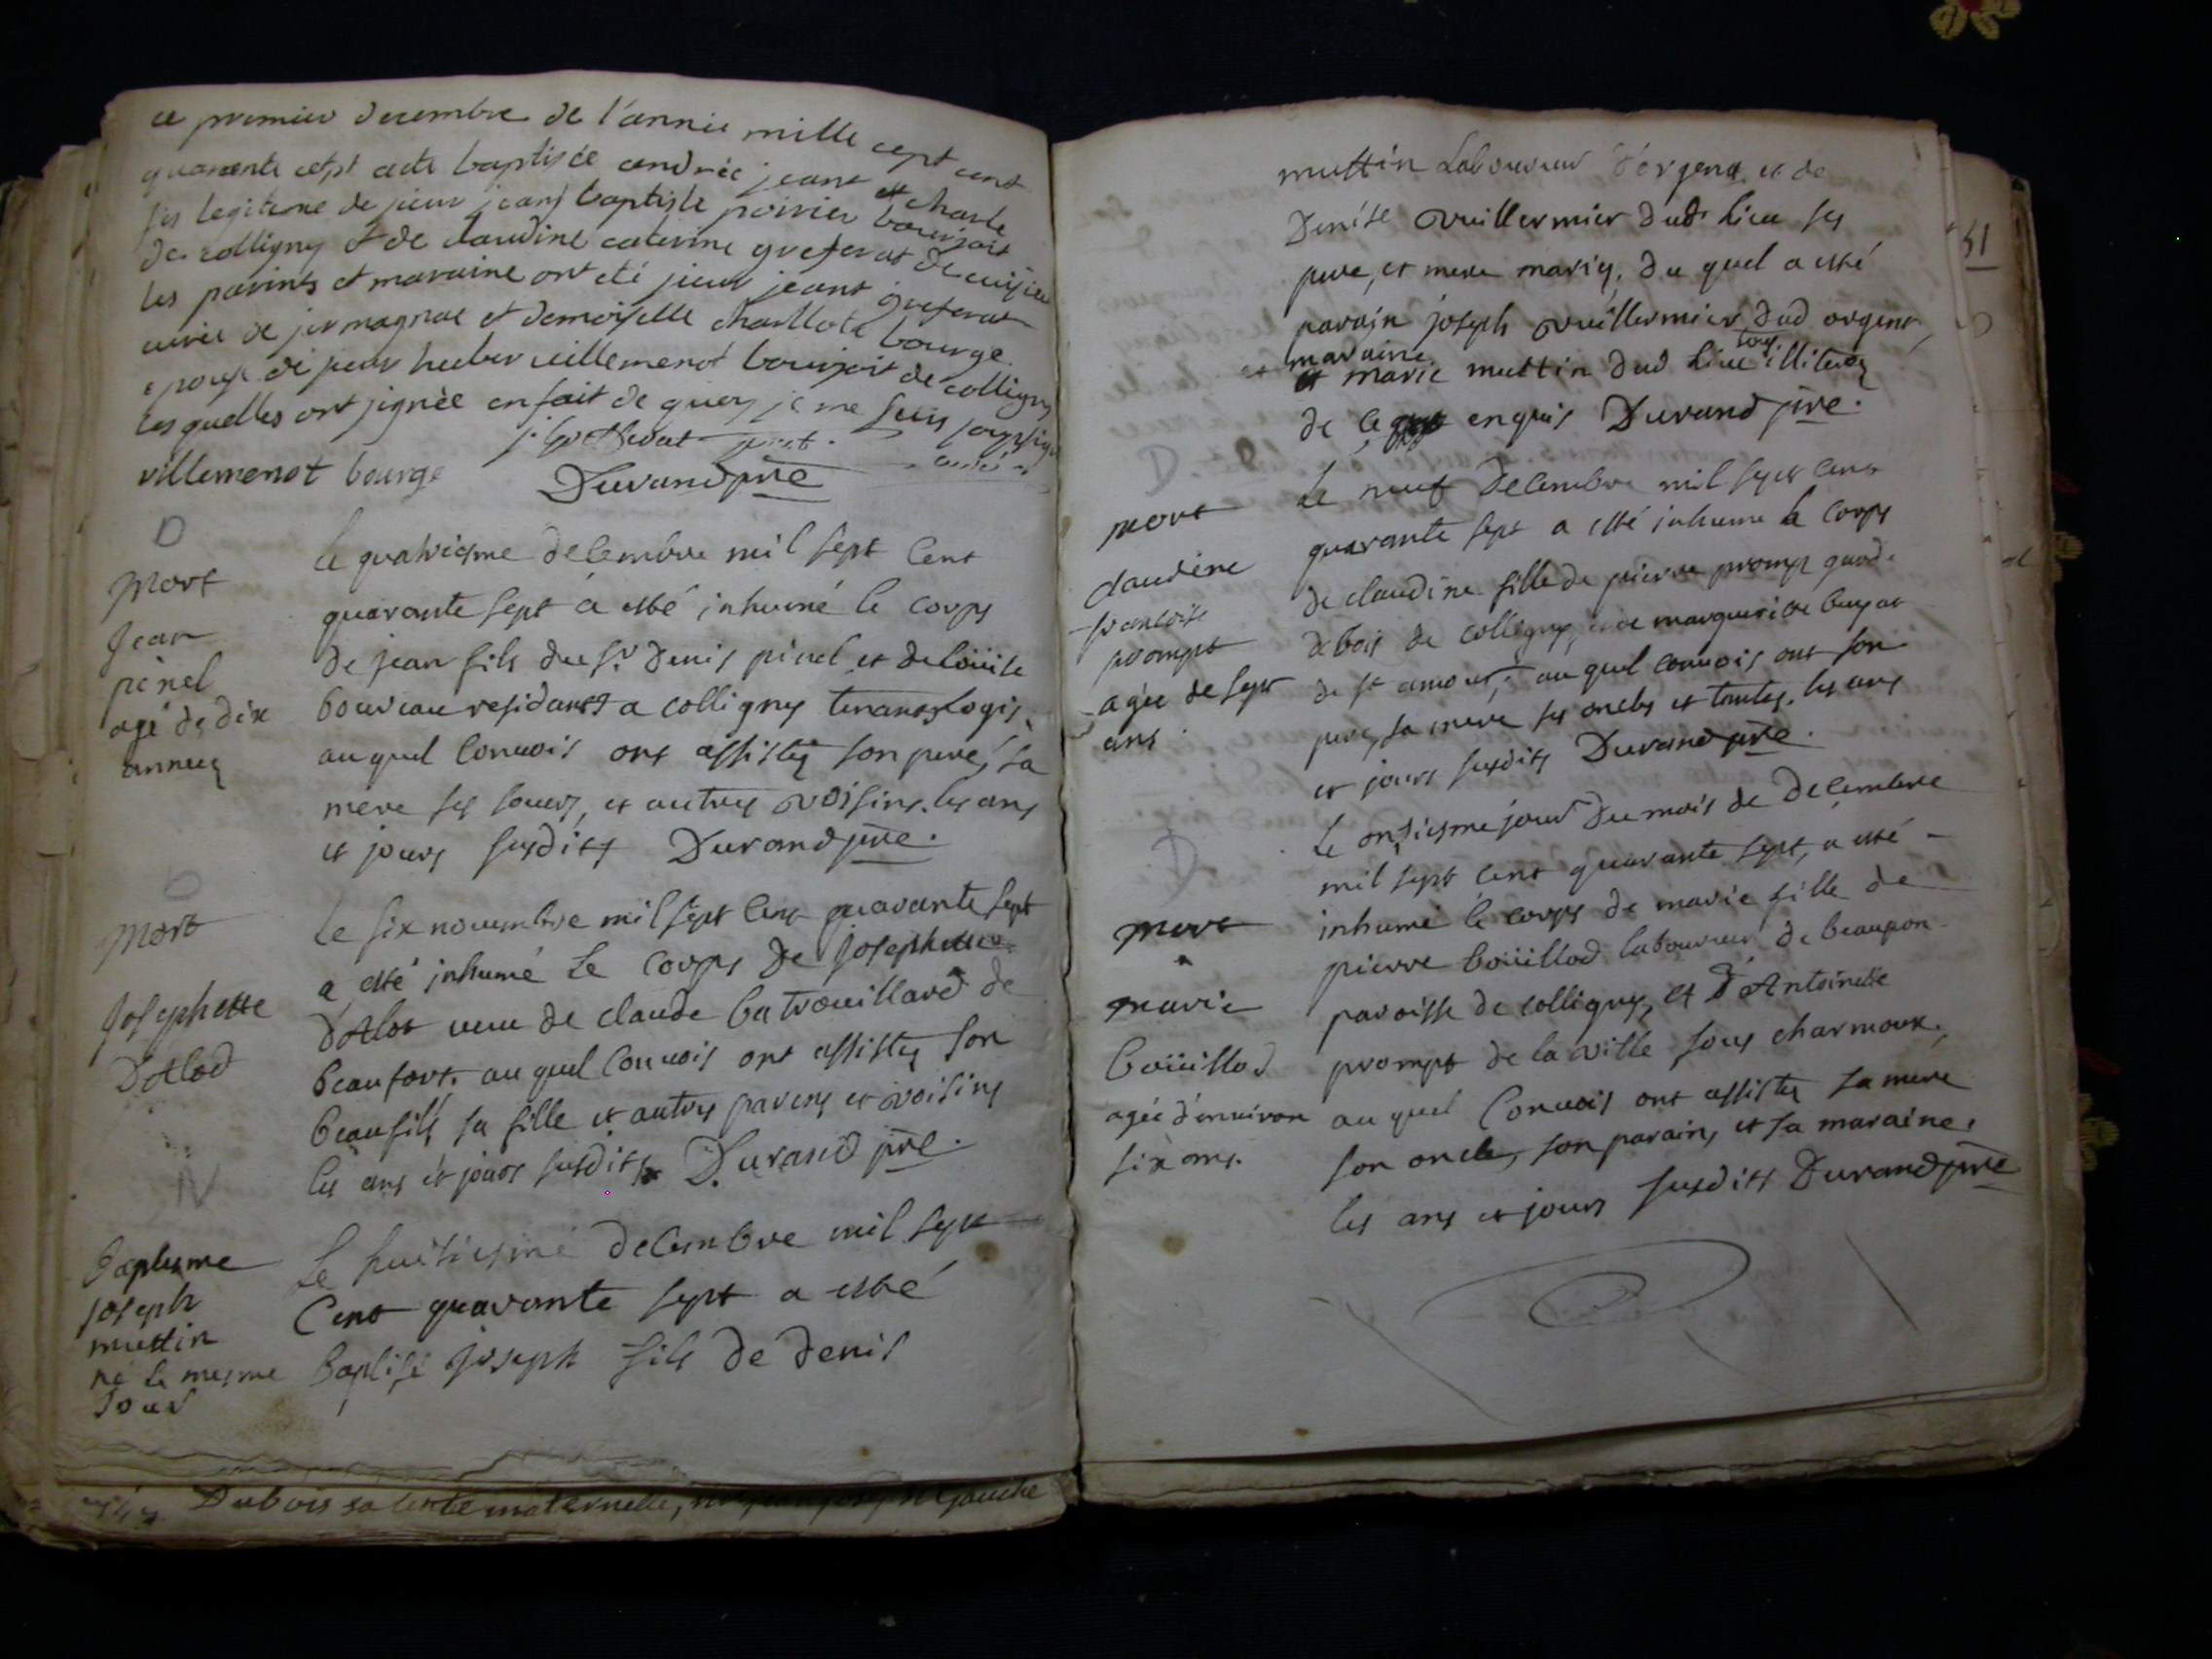 ce premier decembre de l'année mille cept cent
quarente cept aété baptisée andrée jeant et charle
fis legiteme de jieur jeant baptiste poirier bourjoit
de colligny et de claudine caterine greferat de cuisia
les parints et maraine ont été jieur jeant greferat
curée de jermagnac et demoiselle charllote bourge
epouse de jieur huber uillemenot bourjoit de colligny
lesquelles ont jignèe en fait de quoy je me suis
villemenot bourge
Durand ptre
D
Mort
Jean
pinel
agé de dix
années
le quatriesme decembre mil sept cent
quarante sept a esté inhumé le corps
de jean fils du sr. denis pinel et de loüise
bouveau residants a colligny tenants logis.
au quel convois ont assistez son pere, sa
mere ses soeurs, et autres voisins. les ans
et jours susdits Durand ptre.
D
Mort
Josephette
Dallod
le six nouembre mil sept cent quarante sept
a esté inhumé le corps de josephette
d'allot ueuue de claude la trouillard de
beaufort. au quel conuois ont assistes son
beaufils sa fille et autres parens et voisins
les ans et jours susdits Durand ptre.
N
Baptesme
Joseph
muttin
né le mesme
Jour
le huitiesme decembre mil sept
Cent quarante sept a esté
Baptisé Joseph fils de denis
Dubois sa tente maternelle,
51
muttin Laboureur d'orgent et de
Denise vuillermier dudt lieu ses
pere, et mere mariez, du quel a esté
parain joseph vuillermier dud orgent,
et maraine
et marie muttin dud lieu tous illiterez
de ce enquis Durand ptre.
mort
claudine
francoise
prompt
agée de sept
ans.
Le neuf decembre mil sept cent
quarante sept a esté inhumé le corps
de claudine fille de pierre prompt gard.
de bois de colligny, et de marguerite
de st amour; au quel convois ont son
pere, sa mere ses oncles et tantes. les ans
et jours susdits Durand ptre.
D
mort
marie
boüillod
agée d'enuiron
six ans.
Le onziesme jour du mois de decembre
mil sept cent quarante sept, a esté
inhumé le corps de marie fille de
pierre boüillod laboureur de beaupon
paroisse de colligny, et d'Antoinette
prompt de la ville sous charmoux.
au quel Convois ont assistez sa mere
son oncle, son parain, et sa maraine.
les ans et jours susdits Durand ptre